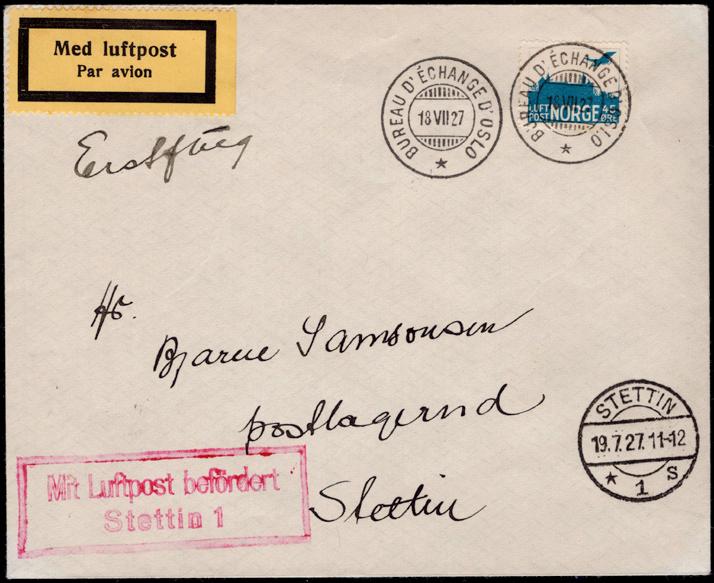 Med luftpost
Par avion
BUREAU D'ÉCHANGE D'OSLO
18 VII 27
BUREAU D'ÉCHANGE D'OSLO
18 VII 27
LUFT
POST
NORGE
45
ØRE
Erstflug
Hr.
Bjarne Samsonsen
postlagernd
Stettin
STETTIN
19.7.27.11-12
* 1 S
Mit Luftpost befördert
Stettin 1